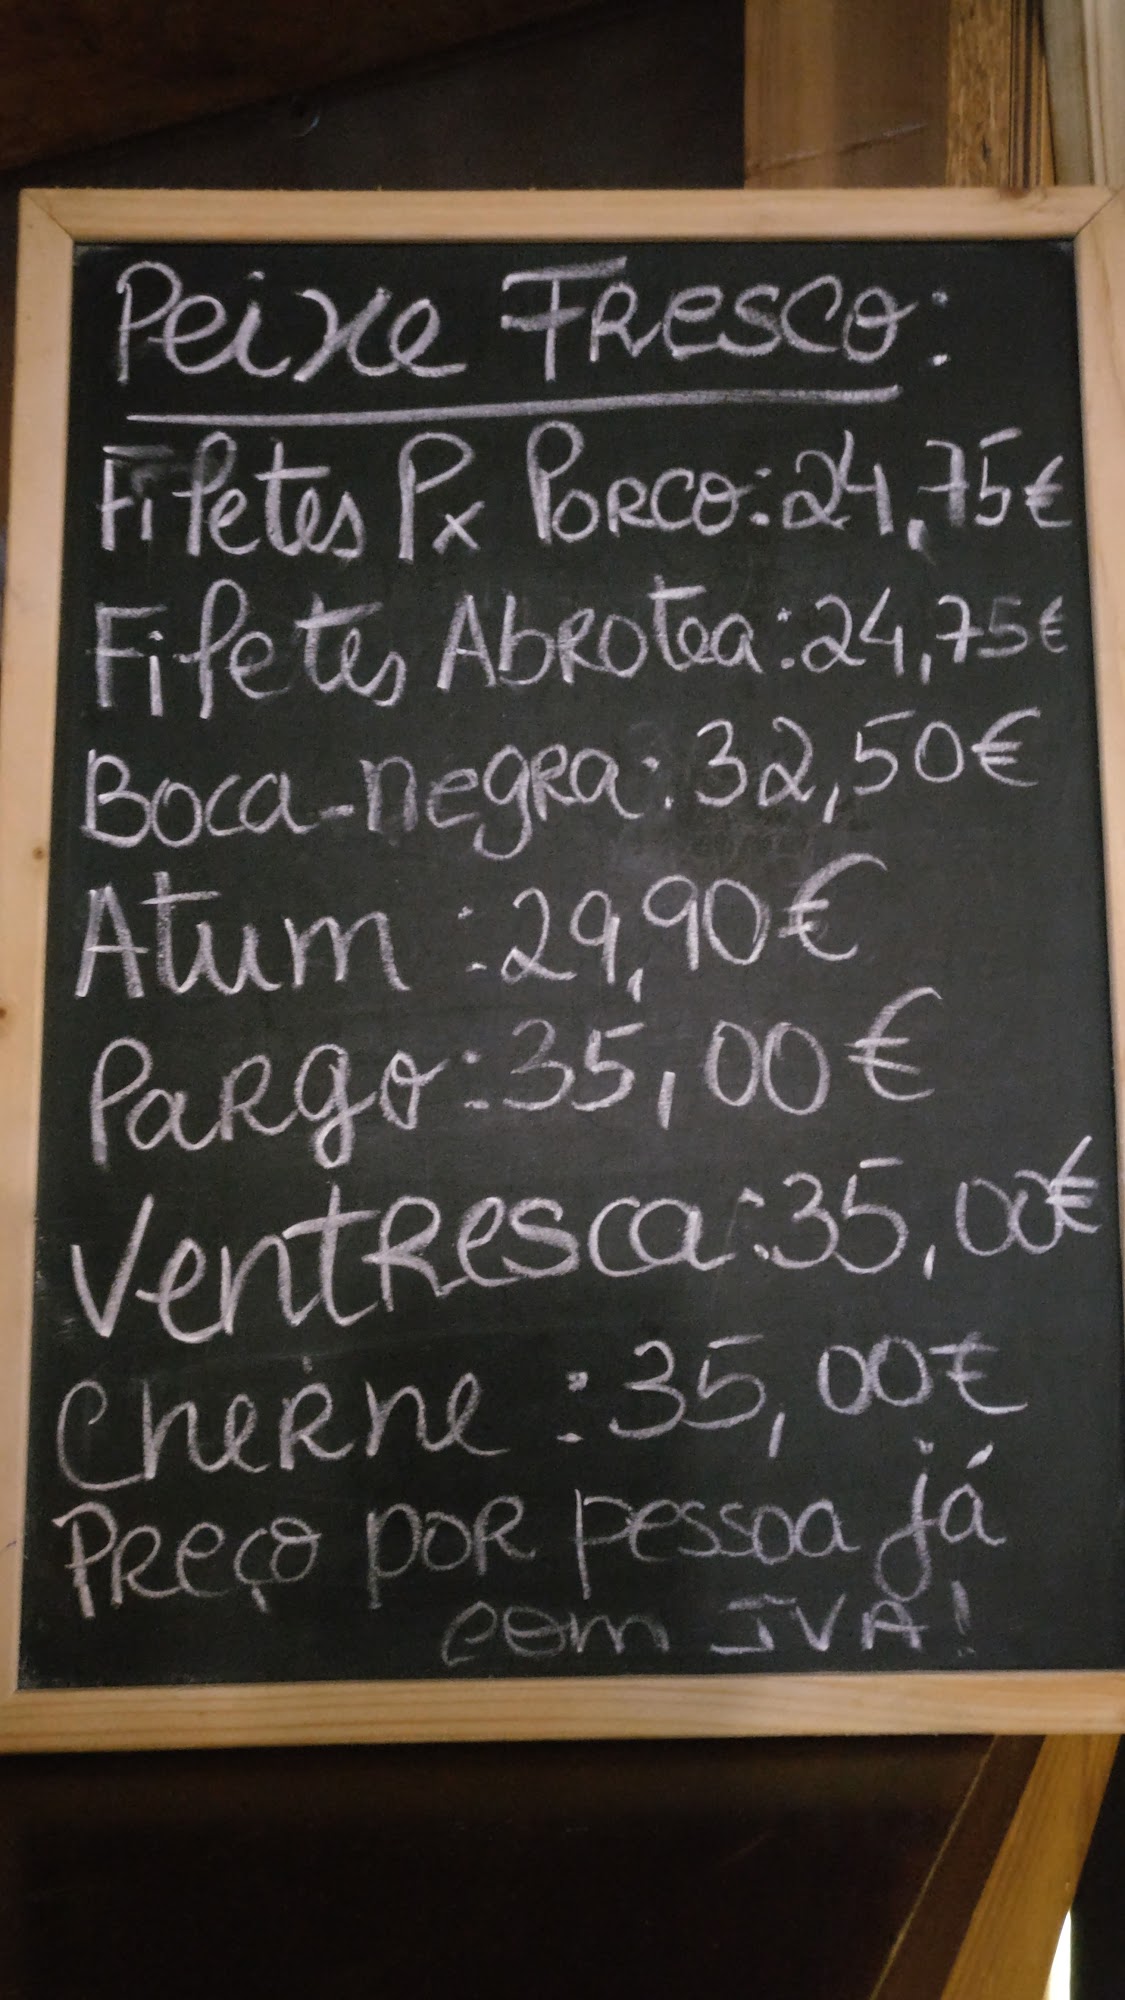 Peixe Fresco:
Filetes Px Porco: 24,75€
Filetes Abrotea: 24,75€
Boca-negra: 32,50€
Atum : 29,90€
Pargo: 35,00€
Ventresca: 35,00€
Cherne : 35,00€
Preço por pessoa já
com IVA!